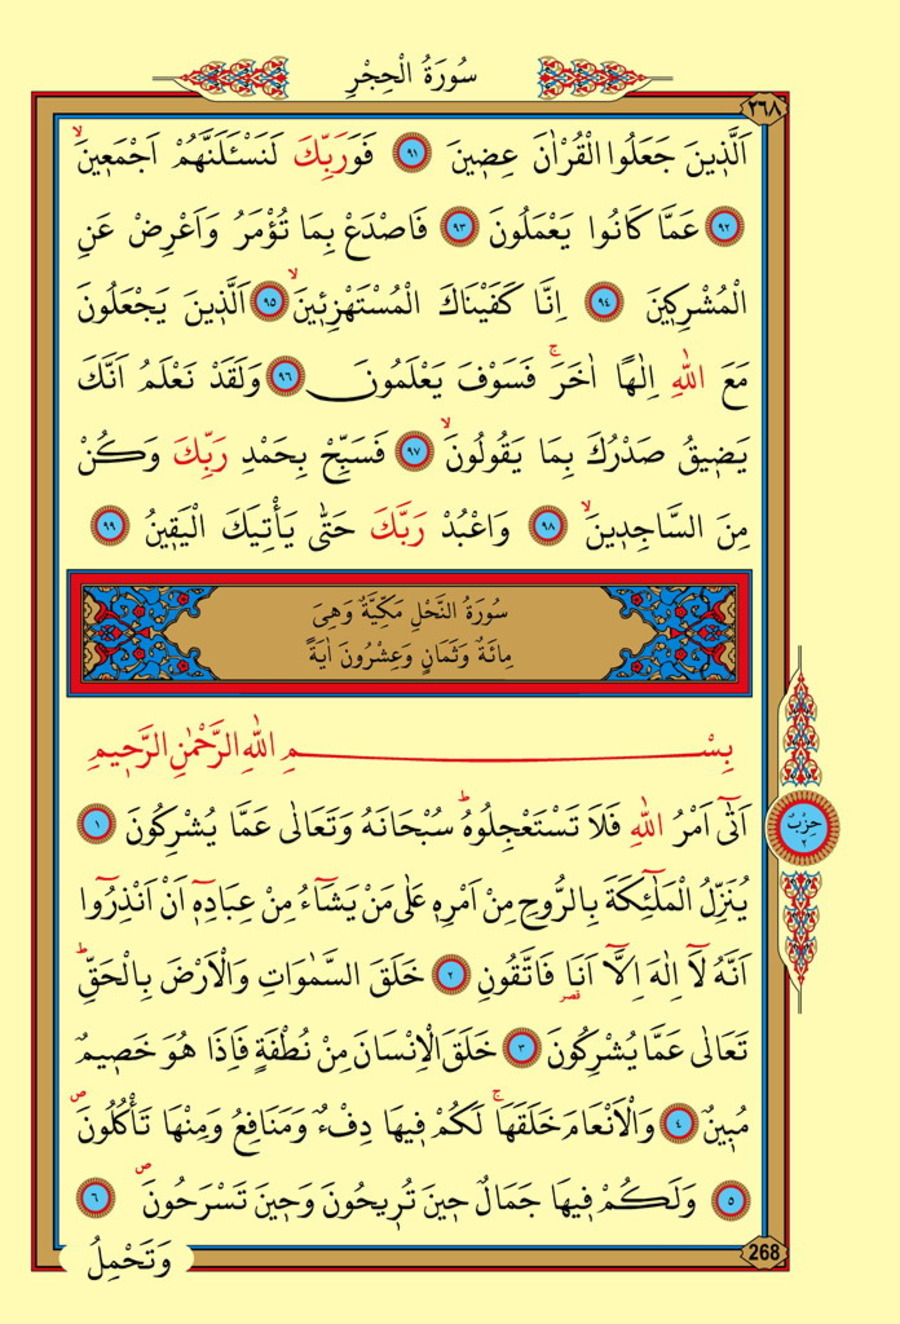 سُورَةُ الْحِجْرِ
٢٦٨
اَلَّذ۪ينَ جَعَلُوا الْقُرْاٰنَ عِض۪ينَ ﴿٩١﴾ فَوَرَبِّكَ لَنَسْـَٔلَنَّهُمْ اَجْمَع۪ينَۙ
﴿٩٢﴾ عَمَّا كَانُوا يَعْمَلُونَ ﴿٩٣﴾ فَاصْدَعْ بِمَا تُؤْمَرُ وَاَعْرِضْ عَنِ
الْمُشْرِك۪ينَ ﴿٩٤﴾ اِنَّا كَفَيْنَاكَ الْمُسْتَهْزِء۪ينَۙ ﴿٩٥﴾ اَلَّذ۪ينَ يَجْعَلُونَ
مَعَ اللّٰهِ اِلٰهًا اٰخَرَۚ فَسَوْفَ يَعْلَمُونَ ﴿٩٦﴾ وَلَقَدْ نَعْلَمُ اَنَّكَ
يَض۪يقُ صَدْرُكَ بِمَا يَقُولُونَۙ ﴿٩٧﴾ فَسَبِّحْ بِحَمْدِ رَبِّكَ وَكُنْ
مِنَ السَّاجِد۪ينَۙ ﴿٩٨﴾ وَاعْبُدْ رَبَّكَ حَتّٰى يَأْتِيَكَ الْيَق۪ينُ ﴿٩٩﴾
سُورَةُ النَّحْلِ مَكِّيَّةٌ وَهِىَ
مِائَةٌ وَثَمَانٍ وَعِشْرُونَ اٰيَةً
بِسْمِ اللّٰهِ الرَّحْمٰنِ الرَّح۪يمِ
اَتٰٓى اَمْرُ اللّٰهِ فَلَا تَسْتَعْجِلُوهُۜ سُبْحَانَهُ وَتَعَالٰى عَمَّا يُشْرِكُونَ ﴿١﴾
حِزْبٌ
٢
يُنَزِّلُ الْمَلٰٓئِكَةَ بِالرُّوحِ مِنْ اَمْرِه۪ عَلٰى مَنْ يَشَٓاءُ مِنْ عِبَادِه۪ٓ اَنْ اَنْذِرُٓوا
اَنَّهُ لَٓا اِلٰهَ اِلَّٓا اَنَا۬ فَاتَّقُونِ ﴿٢﴾ خَلَقَ السَّمٰوَاتِ وَالْاَرْضَ بِالْحَقِّۜ
قصر
تَعَالٰى عَمَّا يُشْرِكُونَ ﴿٣﴾ خَلَقَ الْاِنْسَانَ مِنْ نُطْفَةٍ فَاِذَا هُوَ خَص۪يمٌ
مُب۪ينٌ ﴿٤﴾ وَالْاَنْعَامَ خَلَقَهَاۚ لَكُمْ ف۪يهَا دِفْءٌ وَمَنَافِعُ وَمِنْهَا تَأْكُلُونَۖ
﴿٥﴾ وَلَكُمْ ف۪يهَا جَمَالٌ ح۪ينَ تُر۪يحُونَ وَح۪ينَ تَسْرَحُونَۖ ﴿٦﴾
وَتَحْمِلُ
268